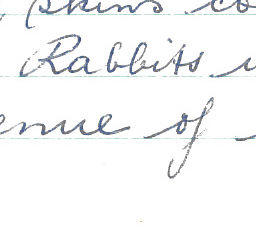 skins co
Rabbits
enue of